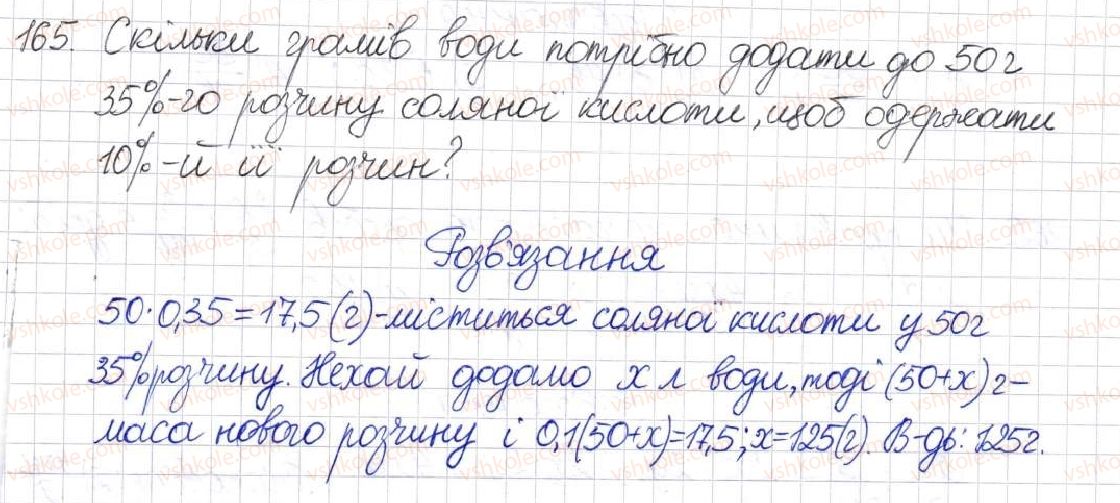 165. Скільки грамів води потрібно додати до 50 г
35%-го розчину соляної кислоти, щоб одержати
10%-й її розчин?
Розв'язання
50·0,35=17,5(г)-міститься соляної кислоти у 50г
35% розчину. Нехай додамо x л води, тоді (50+x) г-
маса нового розчину і 0,1(50+x)=17,5; x=125(г). В-дь: 125г.